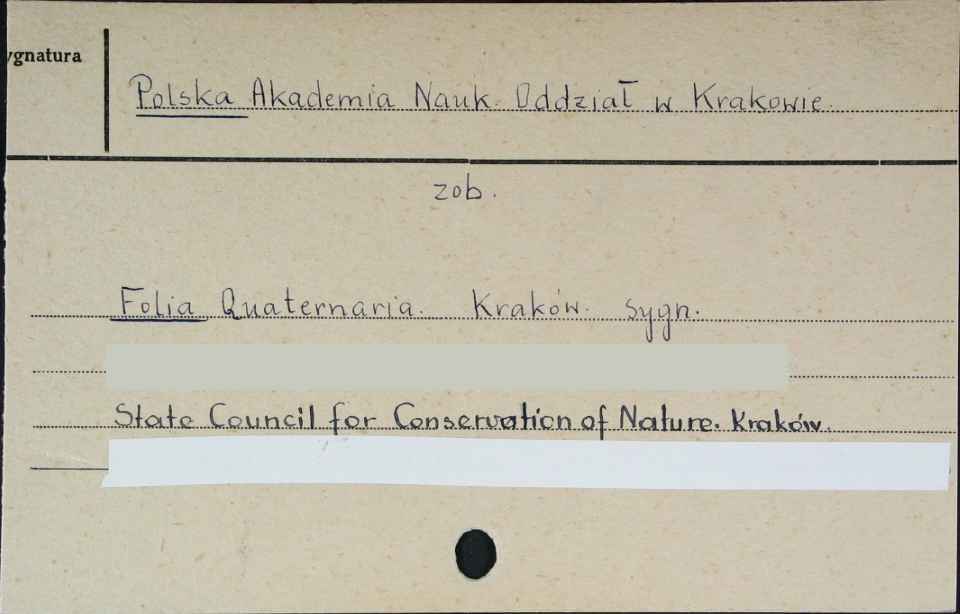 ygnatura
Polska Akademia Nauk. Oddział w Krakowie.
zob.
Folia Quaternaria. Kraków. sygn.
State Council for Conservation of Nature. Kraków.